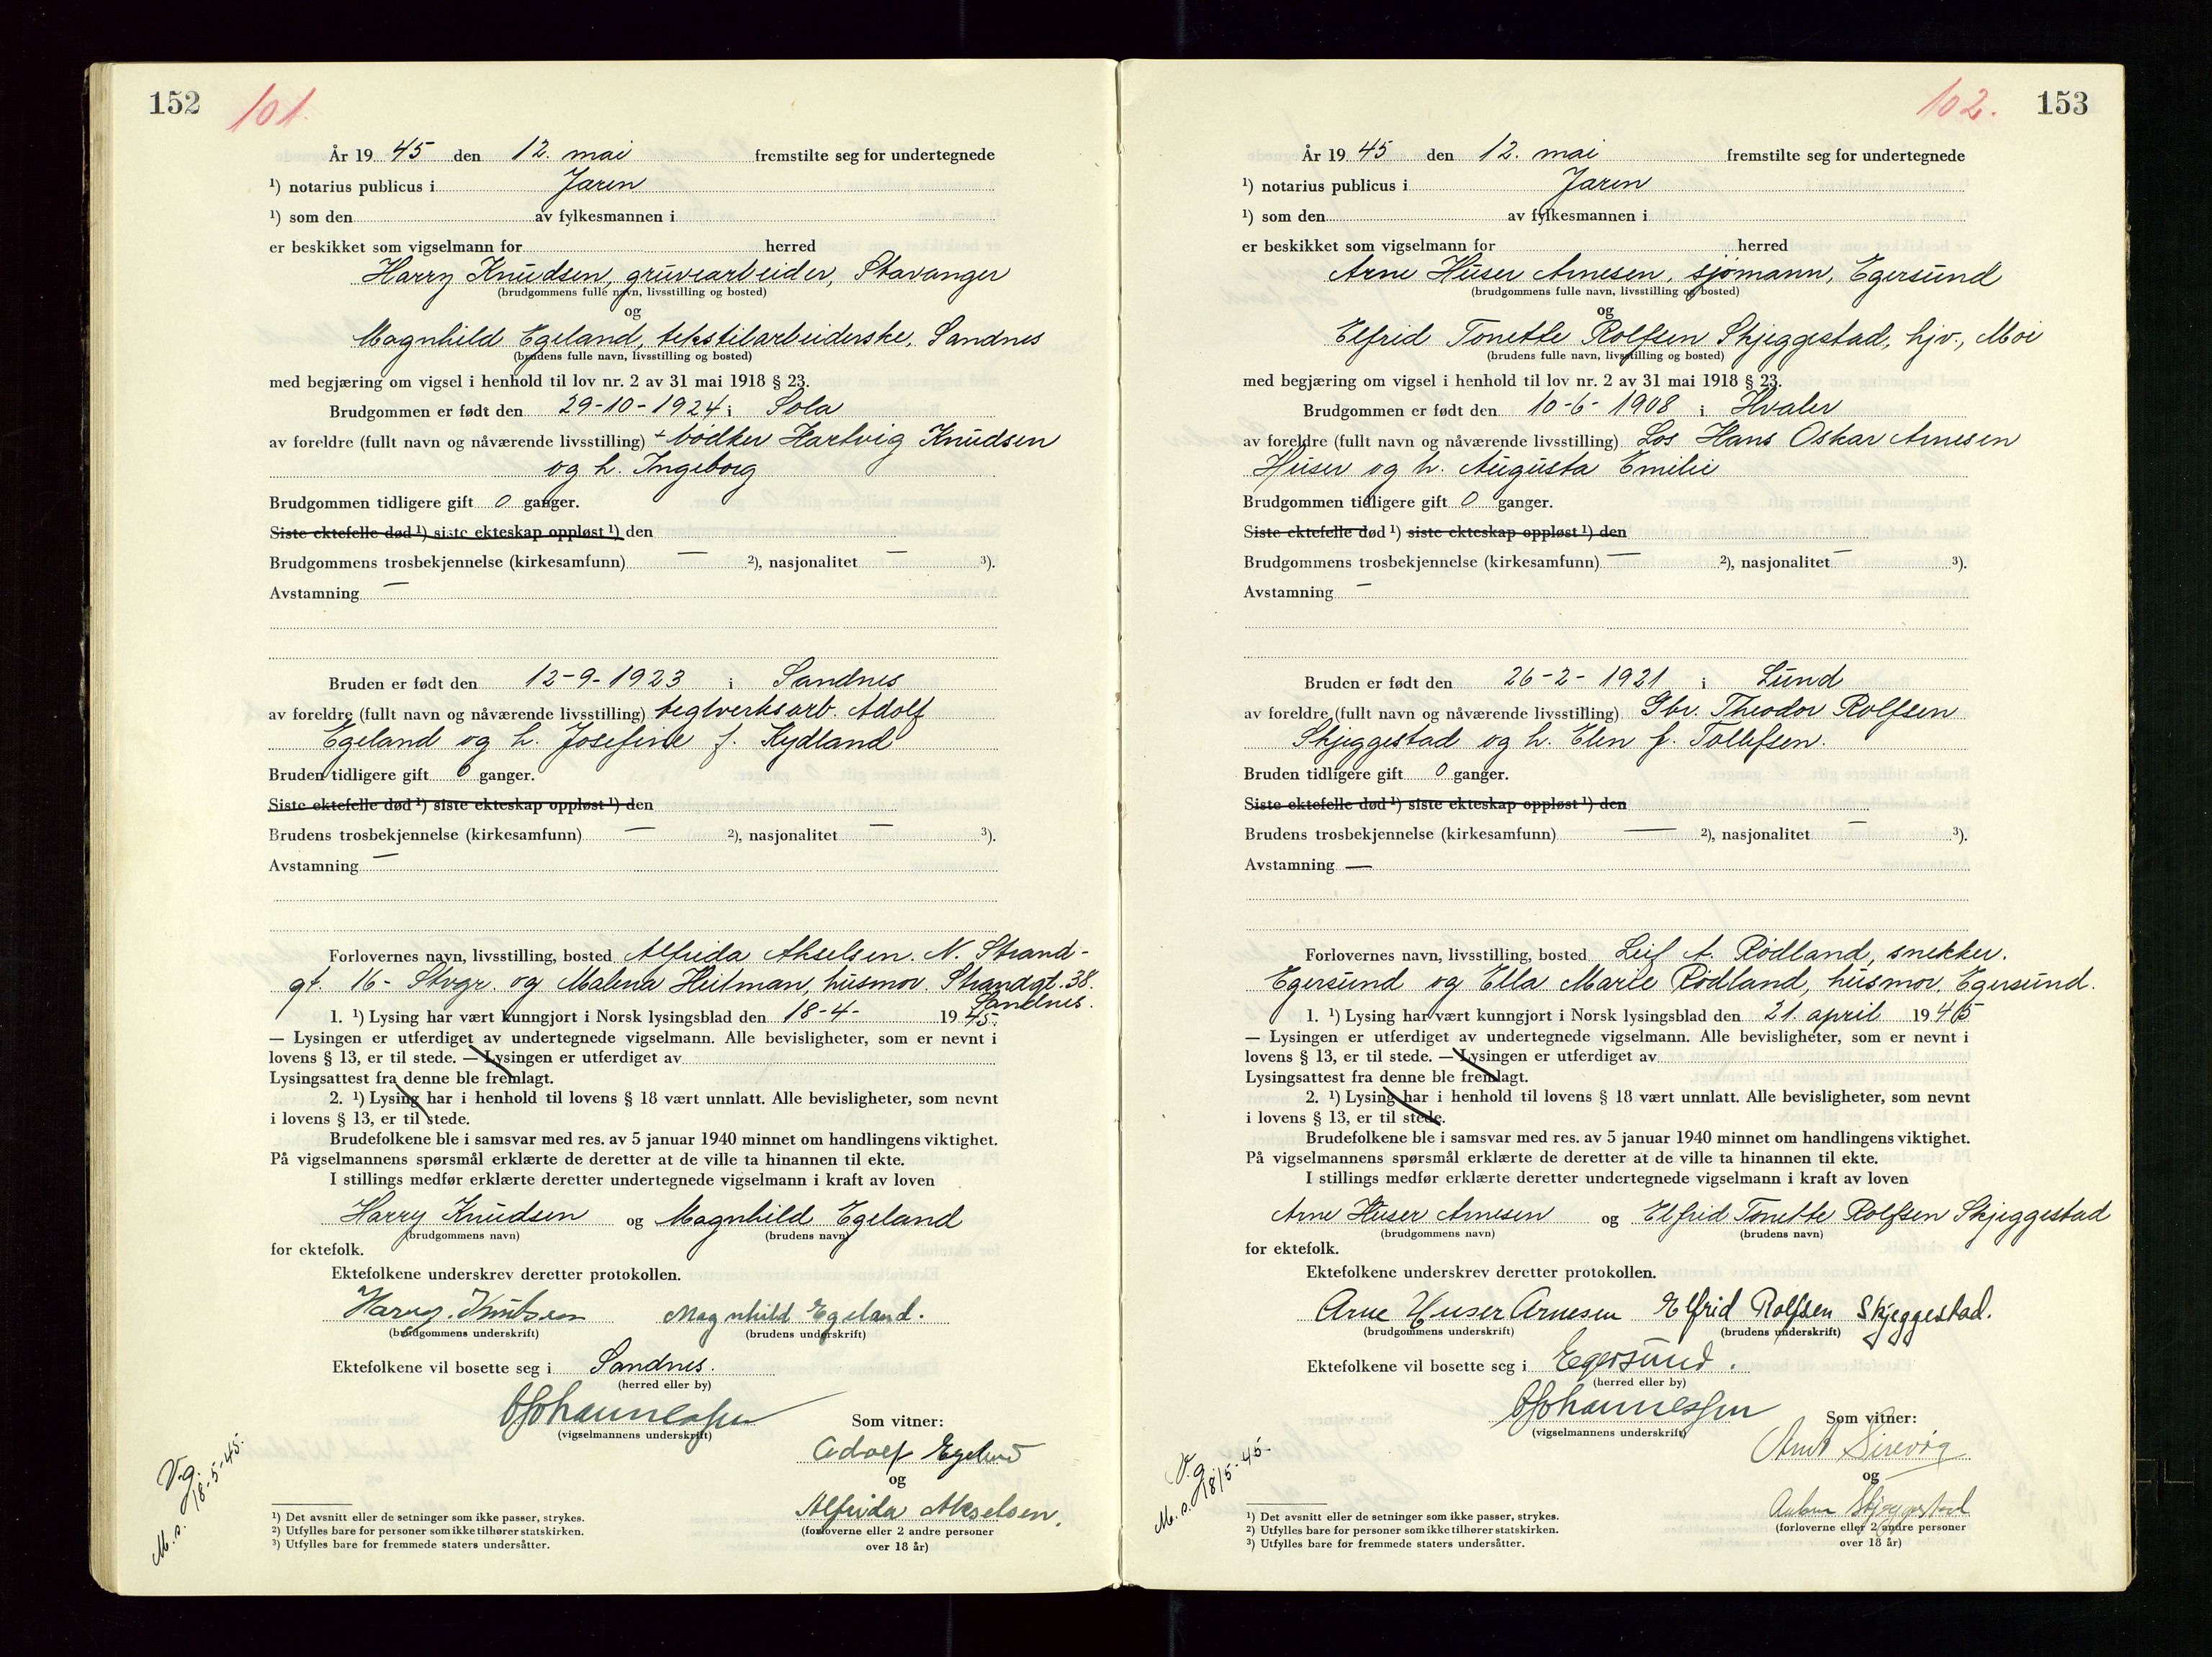 152 101.
År 19 45 den 12. mai fremstilte seg for undertegnede
¹) notarius publicus i Jæren
¹) som den av fylkesmannen i
er beskikket som vigselmann for herred
Harry Knudsen, gruvearbeider, Stavanger
(brudgommens fulle navn, livsstilling og bosted)
og
Magnhild Egeland, tekstilarbeiderske, Sandnes
(brudens fulle navn, livsstilling og bosted)
med begjæring om vigsel i henhold til lov nr. 2 av 31 mai 1918 § 23.
Brudgommen er født den 29-10-1924 i Sola
av foreldre (fullt navn og nåværende livsstilling) + bødker Hartvig Knudsen
og h. Ingeborg
Brudgommen tidligere gift 0 ganger.
Siste ektefelle død ¹) siste ekteskap oppløst ¹) den
Brudgommens trosbekjennelse (kirkesamfunn) — ²), nasjonalitet — ³).
Avstamning —
Bruden er født den 12-9-1923 i Sandnes
av foreldre (fullt navn og nåværende livsstilling) teglverksarb. Adolf
Egeland og h. Josefine f. Kydland
Bruden tidligere gift 0 ganger.
Siste ektefelle død ¹) siste ekteskap oppløst ¹) den
Brudens trosbekjennelse (kirkesamfunn) — ²), nasjonalitet — ³).
Avstamning —
Forlovernes navn, livsstilling, bosted Alfrida Akselsen. N. Strand-
gt. 16 - Stvgr. og Malena Heitman, husmor. Strandgt. 38.
Sandnes.
1. ¹) Lysing har vært kunngjort i Norsk lysingsblad den 18-4- 19 45.
— Lysingen er utferdiget av undertegnede vigselmann. Alle bevisligheter, som er nevnt i
lovens § 13, er til stede. — Lysingen er utferdiget av
Lysingsattest fra denne ble fremlagt.
2. ¹) Lysing har i henhold til lovens § 18 vært unnlatt. Alle bevisligheter, som nevnt
i lovens § 13, er til stede.
Brudefolkene ble i samsvar med res. av 5 januar 1940 minnet om handlingens viktighet.
På vigselmannens spørsmål erklærte de deretter at de ville ta hinannen til ekte.
I stillings medfør erklærte deretter undertegnede vigselmann i kraft av loven
Harry Knudsen og Magnhild Egeland
(brudgommens navn) (brudens navn)
for ektefolk.
Ektefolkene underskrev deretter protokollen.
Harry. Knudsen Magnhild Egeland.
(brudgommens underskrift) (brudens underskrift)
Ektefolkene vil bosette seg i Sandnes.
(herred eller by)
OJohannessen
(vigselmannens underskrift)
Som vitner:
Adolf Egeland
og
Alfrida Akselsen.
(forloverne eller 2 andre personer
over 18 år)
V.g.
M.s. 18-5-45.
¹) Det avsnitt eller de setninger som ikke passer, strykes.
²) Utfylles bare for personer som ikke tilhører statskirken.
³) Utfylles bare for fremmede staters undersåtter.
102. 153
År 19 45 den 12. mai fremstilte seg for undertegnede
¹) notarius publicus i Jæren
¹) som den av fylkesmannen i
er beskikket som vigselmann for herred
Arne Huser Arnesen, sjømann, Egersund
(brudgommens fulle navn, livsstilling og bosted)
og
Elfrid Tonette Rolfsen Skjeggestad, hjv., Moi
(brudens fulle navn, livsstilling og bosted)
med begjæring om vigsel i henhold til lov nr. 2 av 31 mai 1918 § 23.
Brudgommen er født den 10-6-1908 i Hvaler
av foreldre (fullt navn og nåværende livsstilling) Los Hans Oskar Arnesen
Huser og h. Augusta Emilie
Brudgommen tidligere gift 0 ganger.
Siste ektefelle død ¹) siste ekteskap oppløst ¹) den
Brudgommens trosbekjennelse (kirkesamfunn) — ²), nasjonalitet — ³).
Avstamning —
Bruden er født den 26-2-1921 i Lund
av foreldre (fullt navn og nåværende livsstilling) Gbr. Theodor Rolfsen
Skjeggestad og h. Elen f. Tollefsen.
Bruden tidligere gift 0 ganger.
Siste ektefelle død ¹) siste ekteskap oppløst ¹) den
Brudens trosbekjennelse (kirkesamfunn) — ²), nasjonalitet — ³).
Avstamning —
Forlovernes navn, livsstilling, bosted Leif A. Rødland, snekker.
Egersund og Ella Marie Rødland, husmor, Egersund.
1. ¹) Lysing har vært kunngjort i Norsk lysingsblad den 21. april 19 45
— Lysingen er utferdiget av undertegnede vigselmann. Alle bevisligheter, som er nevnt i
lovens § 13, er til stede. — Lysingen er utferdiget av
Lysingsattest fra denne ble fremlagt.
2. ¹) Lysing har i henhold til lovens § 18 vært unnlatt. Alle bevisligheter, som nevnt
i lovens § 13, er til stede.
Brudefolkene ble i samsvar med res. av 5 januar 1940 minnet om handlingens viktighet.
På vigselmannens spørsmål erklærte de deretter at de ville ta hinannen til ekte.
I stillings medfør erklærte deretter undertegnede vigselmann i kraft av loven
Arne Huser Arnesen og Elfrid Tonette Rolfsen Skjeggestad
(brudgommens navn) (brudens navn)
for ektefolk.
Ektefolkene underskrev deretter protokollen.
Arne Huser Arnesen Elfrid Rolfsen Skjeggestad.
(brudgommens underskrift) (brudens underskrift)
Ektefolkene vil bosette seg i Egersund.
(herred eller by)
OJohannessen
(vigselmannens underskrift)
Som vitner:
Arnt Sirevåg
og
Skjeggestad
(forloverne eller 2 andre personer
over 18 år)
V.g.
M.s. 18/5-45.
¹) Det avsnitt eller de setninger som ikke passer, strykes.
²) Utfylles bare for personer som ikke tilhører statskirken.
³) Utfylles bare for fremmede staters undersåtter.